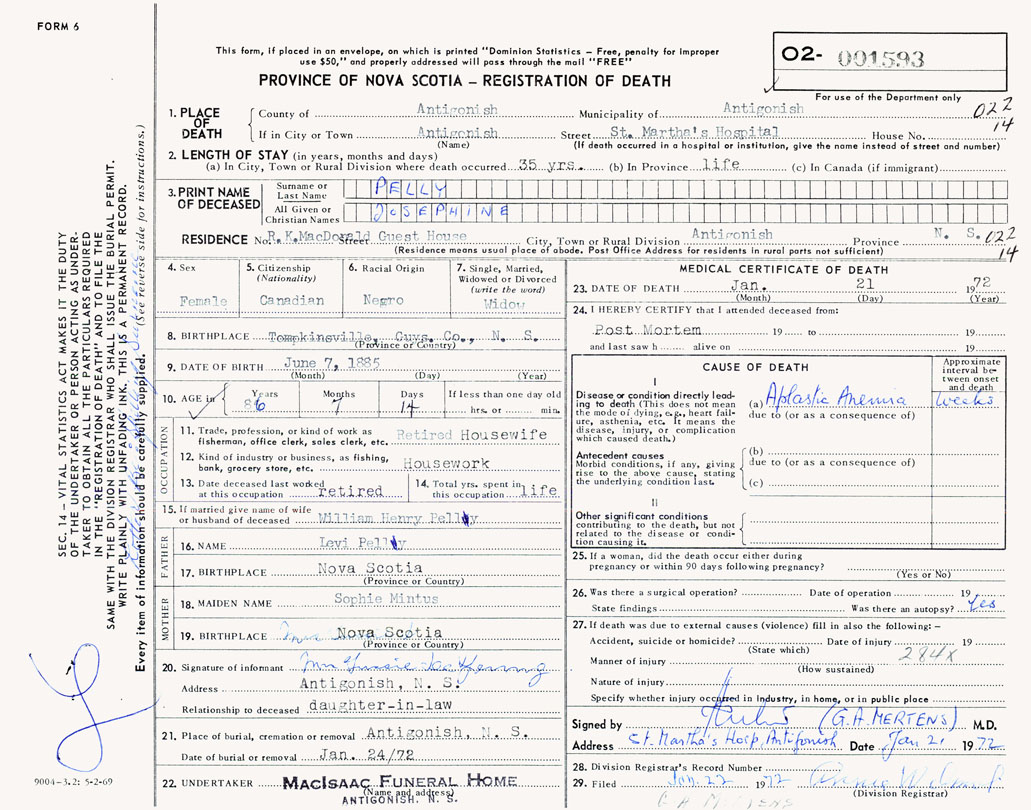 FORM 6
This form, if placed in an envelope, on which is printed "Dominion Statistics – Free, penalty for improper
use $50," and properly addressed will pass through the mail "FREE"
PROVINCE OF NOVA SCOTIA – REGISTRATION OF DEATH
02- 001593
For use of the Department only
022
14
SEC. 14 – VITAL STATISTICS ACT MAKES IT THE DUTY
OF THE UNDERTAKER OR PERSON ACTING AS UNDER-
TAKER TO OBTAIN ALL THE PARTICULARS REQUIRED
IN THE "REGISTRATION OF DEATH" AND TO FILE THE
SAME WITH THE DIVISION REGISTRAR WHO SHALL ISSUE THE BURIAL PERMIT.
WRITE PLAINLY WITH UNFADING INK, THIS IS A PERMANENT RECORD.
Every item of information should be carefully supplied. (See reverse side for instructions.)
1. PLACE OF DEATH
County of Antigonish Municipality of Antigonish
If in City or Town Antigonish Street St. Martha's Hospital House No.
(Name) (If death occurred in a hospital or institution, give the name instead of street and number)
2. LENGTH OF STAY (in years, months and days)
(a) In City, Town or Rural Division where death occurred 35 yrs. (b) In Province life (c) In Canada (if immigrant)
3. PRINT NAME OF DECEASED
Surname or Last Name PELLY
All Given or Christian Names JOSEPHINE
RESIDENCE No. R.K.MacDonald Street Guest House City, Town or Rural Division Antigonish Province N. S. 022
(Residence means usual place of abode. Post Office Address for residents in rural parts not sufficient) 14
4. Sex
Female
5. Citizenship
(Nationality)
Canadian
6. Racial Origin
Negro
7. Single, Married,
Widowed or Divorced
(write the word)
Widow
8. BIRTHPLACE Tompkinsville, Guys. Co., N. S.
(Province or Country)
9. DATE OF BIRTH June 7, 1885
(Month) (Day) (Year)
10. AGE in Years 86 Months 7 Days 14 If less than one day old
hrs. or min.
OCCUPATION
11. Trade, profession, or kind of work as
fisherman, office clerk, sales clerk, etc. Retired Housewife
12. Kind of industry or business, as fishing,
bank, grocery store, etc. Housework
13. Date deceased last worked
at this occupation retired
14. Total yrs. spent in
this occupation life
15. If married give name of wife
or husband of deceased William Henry Pelly
FATHER
16. NAME Levi Pelly
17. BIRTHPLACE Nova Scotia
(Province or Country)
MOTHER
18. MAIDEN NAME Sophie Mintus
19. BIRTHPLACE Nova Scotia
(Province or Country)
20. Signature of informant
Address Antigonish, N. S.
Relationship to deceased daughter-in-law
21. Place of burial, cremation or removal Antigonish, N. S.
Date of burial or removal Jan. 24/72
22. UNDERTAKER MACISAAC FUNERAL HOME
(Name and address)
ANTIGONISH, N. S.
9004-3.2; 5-2-69
MEDICAL CERTIFICATE OF DEATH
23. DATE OF DEATH Jan. 21 1972
(Month) (Day) (Year)
24. I HEREBY CERTIFY that I attended deceased from:
Post Mortem 19 to 19
and last saw h alive on 19
CAUSE OF DEATH
Approximate
interval be-
tween onset
and death
I
Disease or condition directly lead-
ing to death (This does not mean
the mode of dying, e.g., heart fail-
ure, asthenia, etc. It means the
disease, injury, or complication
which caused death.)
(a) Aplastic Anemia weeks
due to (or as a consequence of)
Antecedent causes
Morbid conditions, if any, giving
rise to the above cause, stating
the underlying condition last.
(b)
due to (or as a consequence of)
(c)
II
Other significant conditions
contributing to the death, but not
related to the disease or condi-
tion causing it.
25. If a woman, did the death occur either during
pregnancy or within 90 days following pregnancy?
(Yes or No)
26. Was there a surgical operation? Date of operation 19
State findings Was there an autopsy? Yes
27. If death was due to external causes (violence) fill in also the following: –
Accident, suicide or homicide? Date of injury 19
(State which) 284x
Manner of injury
(How sustained)
Nature of injury
Specify whether injury occurred in Industry, in home, or in public place
Signed by (G.A. MERTENS) M.D.
Address St. Martha's Hosp, Antigonish Date Jan 21 1972
28. Division Registrar's Record Number
29. Filed Jan. 22 1972
(Division Registrar)
G A MERTENS